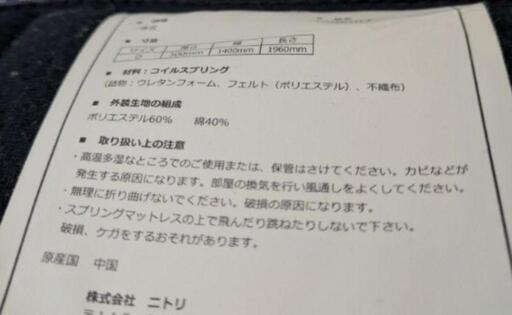 一体式
■ 寸法
サイズ 厚さ 幅 長さ
D 1400mm 1960mm
■ 材料：コイルスプリング
(詰物：ウレタンフォーム、フェルト（ポリエステル）、不織布）
■ 外装生地の組成
ポリエステル60% 綿40%
■ 取り扱い上の注意
・高温多湿なところでのご使用または、保管はさけてください。カビなどが
発生する原因になります。部屋の換気を行い風通しをよくしてください。
・無理に折り曲げないでください。破損の原因になります。
・スプリングマットレスの上で飛んだり跳ねたりしないで下さい。
破損、ケガをするおそれがあります。
原産国 中国
株式会社 ニトリ